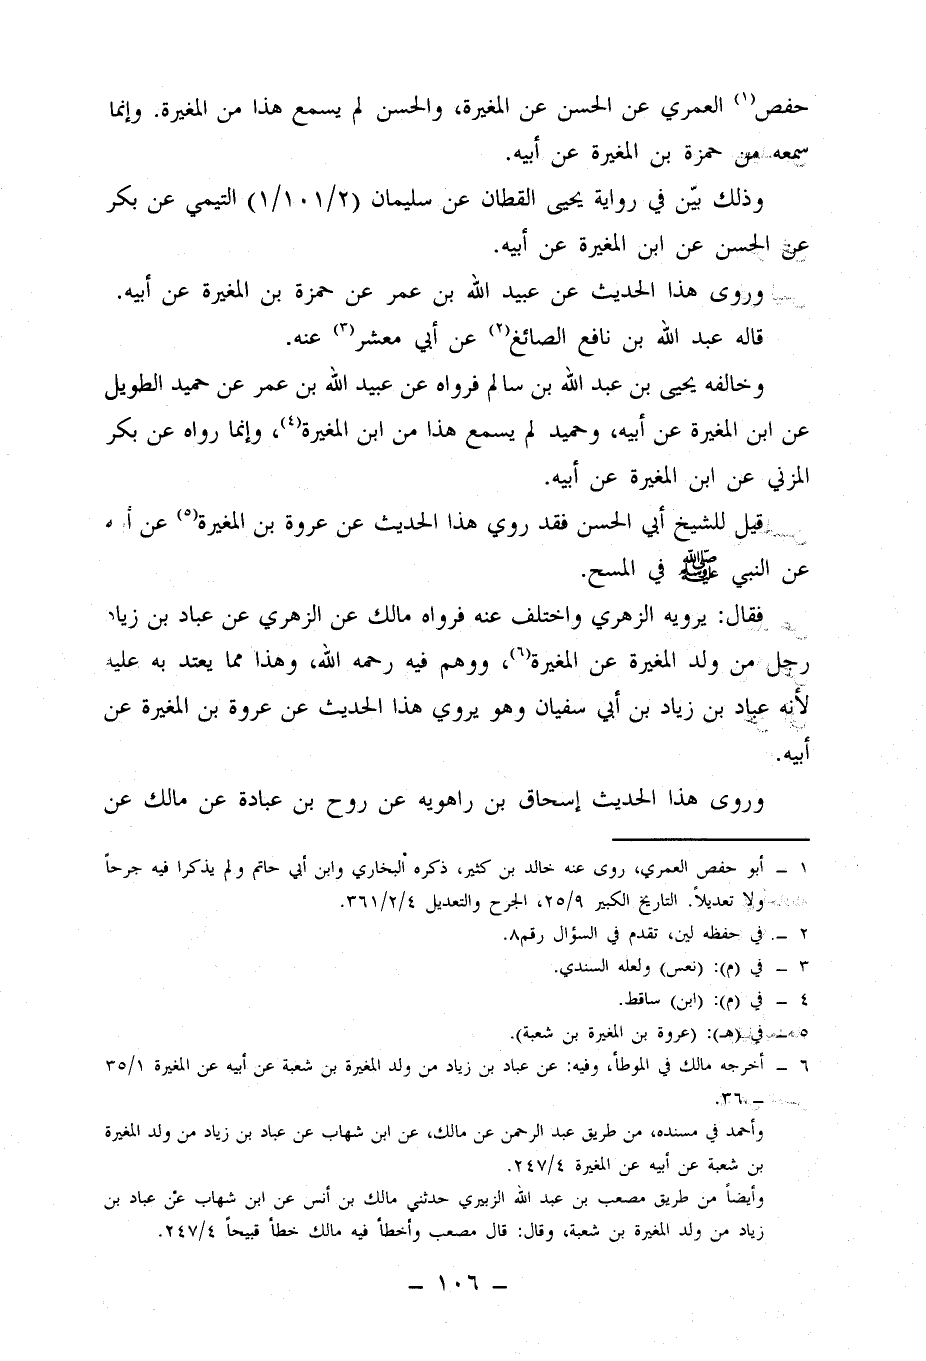 حفص(١) العمري عن الحسن عن المغيرة، والحسن لم يسمع هذا من المغيرة. وإنما
سمعه من حمزة بن المغيرة عن أبيه.
وذلك بيّن في رواية يحيى القطان عن سليمان (١/١٠١/٢) التيمي عن بكر
عن الحسن عن ابن المغيرة عن أبيه.
وروى هذا الحديث عن عبيد الله بن عمر عن حمزة بن المغيرة عن أبيه.
قاله عبد الله بن نافع الصائغ(٢) عن أبي معشر(٣) عنه.
وخالفه يحيى بن عبد الله بن سالم فرواه عن عبيد الله بن عمر عن حميد الطويل
عن ابن المغيرة عن أبيه، وحميد لم يسمع هذا من ابن المغيرة(٤)، وإنما رواه عن بكر
المزني عن ابن المغيرة عن أبيه.
قيل للشيخ أبي الحسن فقد روي هذا الحديث عن عروة بن المغيرة(٥) عن
عن النبي ﷺ في المسح.
فقال: يرويه الزهري واختلف عنه فرواه مالك عن الزهري عن عباد بن زياد
رجل من ولد المغيرة عن المغيرة(٦)، ووهم فيه رحمه الله، وهذا مما يعتد به عليه
لأنه عباد بن زياد بن أبي سفيان وهو يروي هذا الحديث عن عروة بن المغيرة عن
أبيه.
وروى هذا الحديث إسحاق بن راهويه عن روح بن عبادة عن مالك عن
١ ـ أبو حفص العمري، روى عنه خالد بن كثير، ذكره البخاري وابن أبي حاتم ولم يذكرا فيه جرحاً
ولا تعديلاً. التاريخ الكبير ٢٥/٩، الجرح والتعديل ٣٦١/٢/٤.
٢ ـ في حفظه لين، تقدم في السؤال رقم٨.
٣ ـ في (م): (نعس) ولعله السندي.
٤ ـ في (م): (ابن) ساقط.
٥ ـ في (هـ): (عروة بن المغيرة بن شعبة).
٦ ـ أخرجه مالك في الموطأ، وفيه: عن عباد بن زياد من ولد المغيرة بن شعبة عن أبيه عن المغيرة ٣٥/١
ـ ٣٦.
وأحمد في مسنده، من طريق عبد الرحمن عن مالك، عن ابن شهاب عن عباد بن زياد من ولد المغيرة
بن شعبة عن أبيه عن المغيرة ٢٤٧/٤.
وأيضاً من طريق مصعب بن عبد الله الزبيري حدثني مالك بن أنس عن ابن شهاب عن عباد بن
زياد من ولد المغيرة بن شعبة، وقال: قال مصعب وأخطأ فيه مالك خطأ قبيحاً ٢٤٧/٤.
ـ ١٠٦ ـ